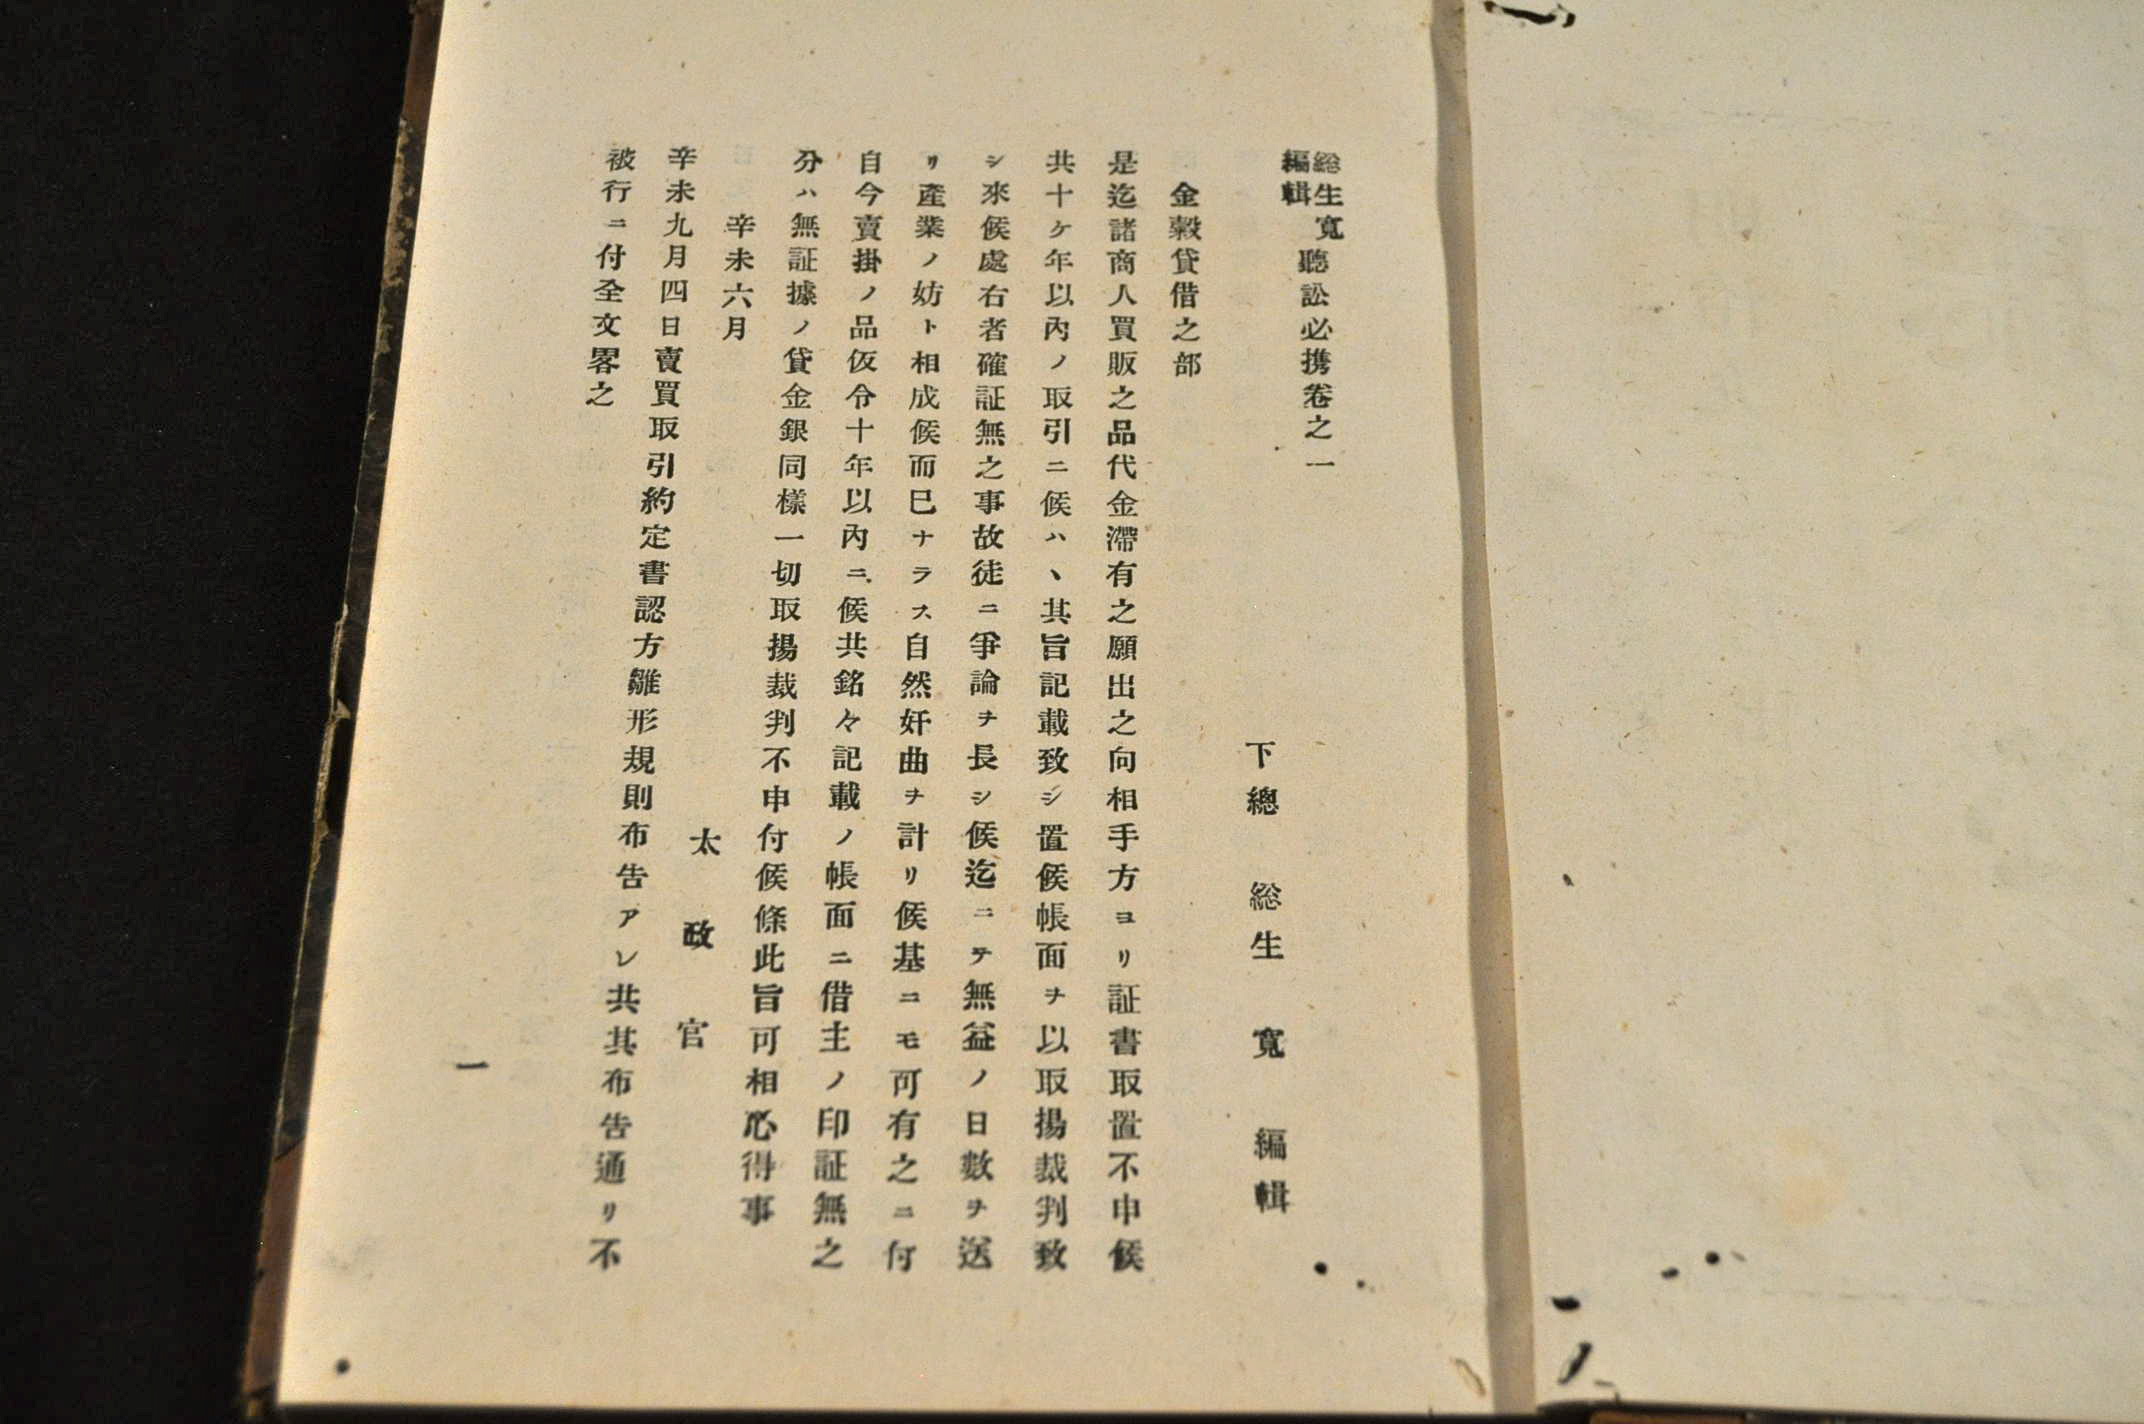 総生寛
編輯 聽訟必携卷之一
下總 総生寛編輯
金穀貸借之部
是迄諸商人買販之品代金滯有之願出之向相手方ヨリ証書取置不申候
共十ケ年以內ノ取引ニ候ハヽ其旨記載致シ置候帳面ヲ以取揚裁判致
シ來候處右者確証無之事故徒ニ爭論ヲ長シ候迄ニテ無益ノ日數ヲ送
リ產業ノ妨ト相成候而已ナラス自然奸曲ヲ計リ候基ニモ可有之ニ付
自今賣掛ノ品仮令十年以內ニ候共銘々記載ノ帳面ニ借主ノ印証無之
分ハ無証據ノ貸金銀同樣一切取揚裁判不申付候條此旨可相心得事
辛未六月
太政官
辛未九月四日賣買取引約定書認方雛形規則布告アレ共其布告通リ不
被行ニ付全文畧之
一